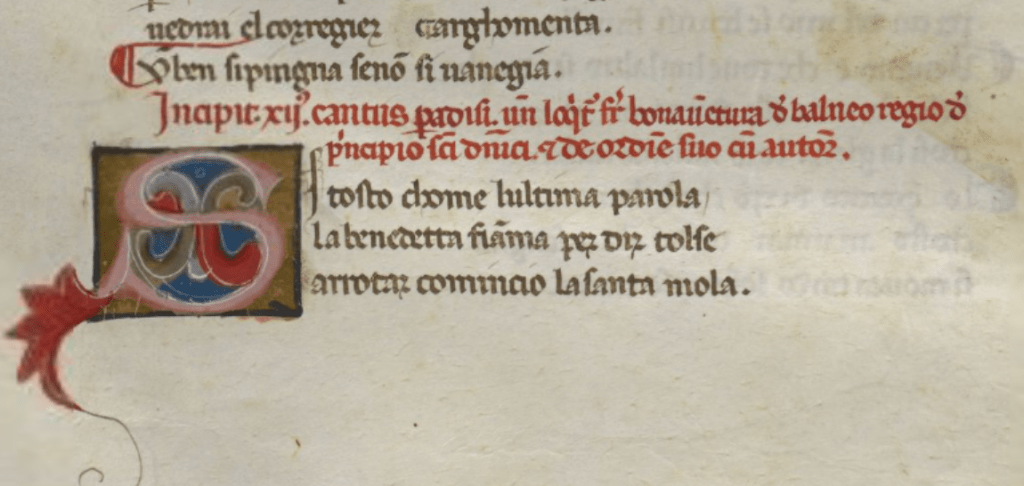 uedrai el coregier carghomenta.
V ben sipingna senō si uanegia.
Incipit .xij. cantus paradisi. uñ loqit̃ fr̃ bonauētura đ balneo regio đ
p̃ncipio sc̄i dm̄ci. ⁊ de ordīe suo cū autoꝛ̃.
S I tosto chome lultima parola
la benedetta fiāma per dir tolse
arrotar comincio la santa mola.